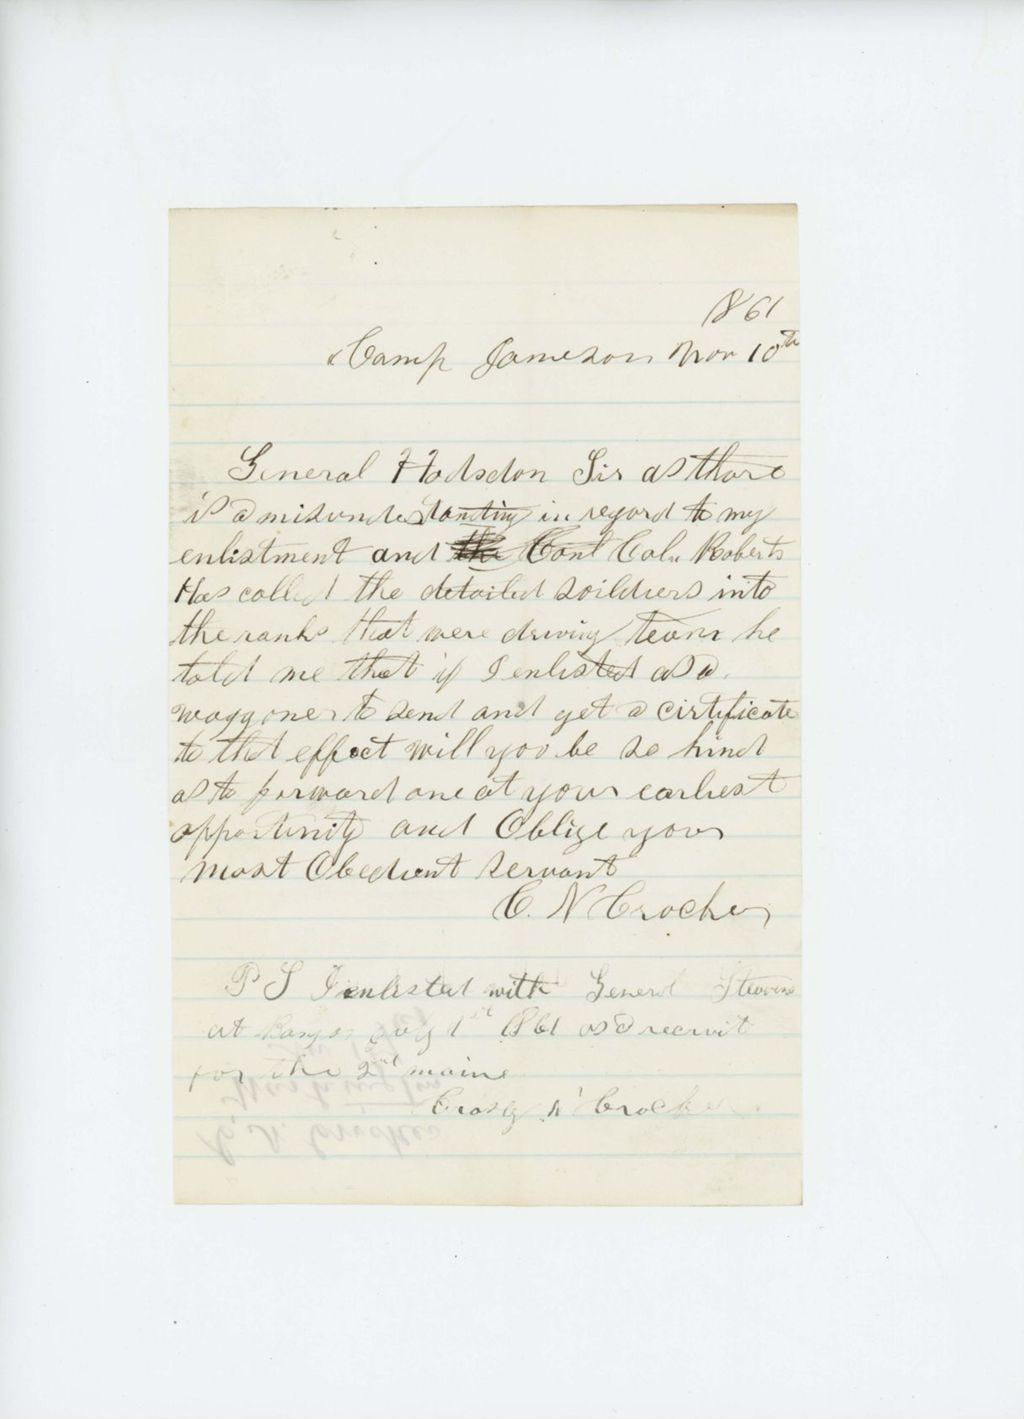 1861
Camp Jameson Nov 10th
General Hodsdon Sir as there
is a misunderstanding in regard to my
enlistment and the Conl Coln Roberts
Has called the detailed soildiers into
the ranks that were driving team he
told me that if I enlisted as a
waggoner to send and get a cirtificate
to that effect will you be so kind
as to forward one at your earliest
opportunity and Oblige your
most Obedient servant
C. N Crocker
P S I enlisted with General Stevens
at 1st 1861 as a recruit
for the 2nd maine
Crosby N Crocker
C. N. Crocker